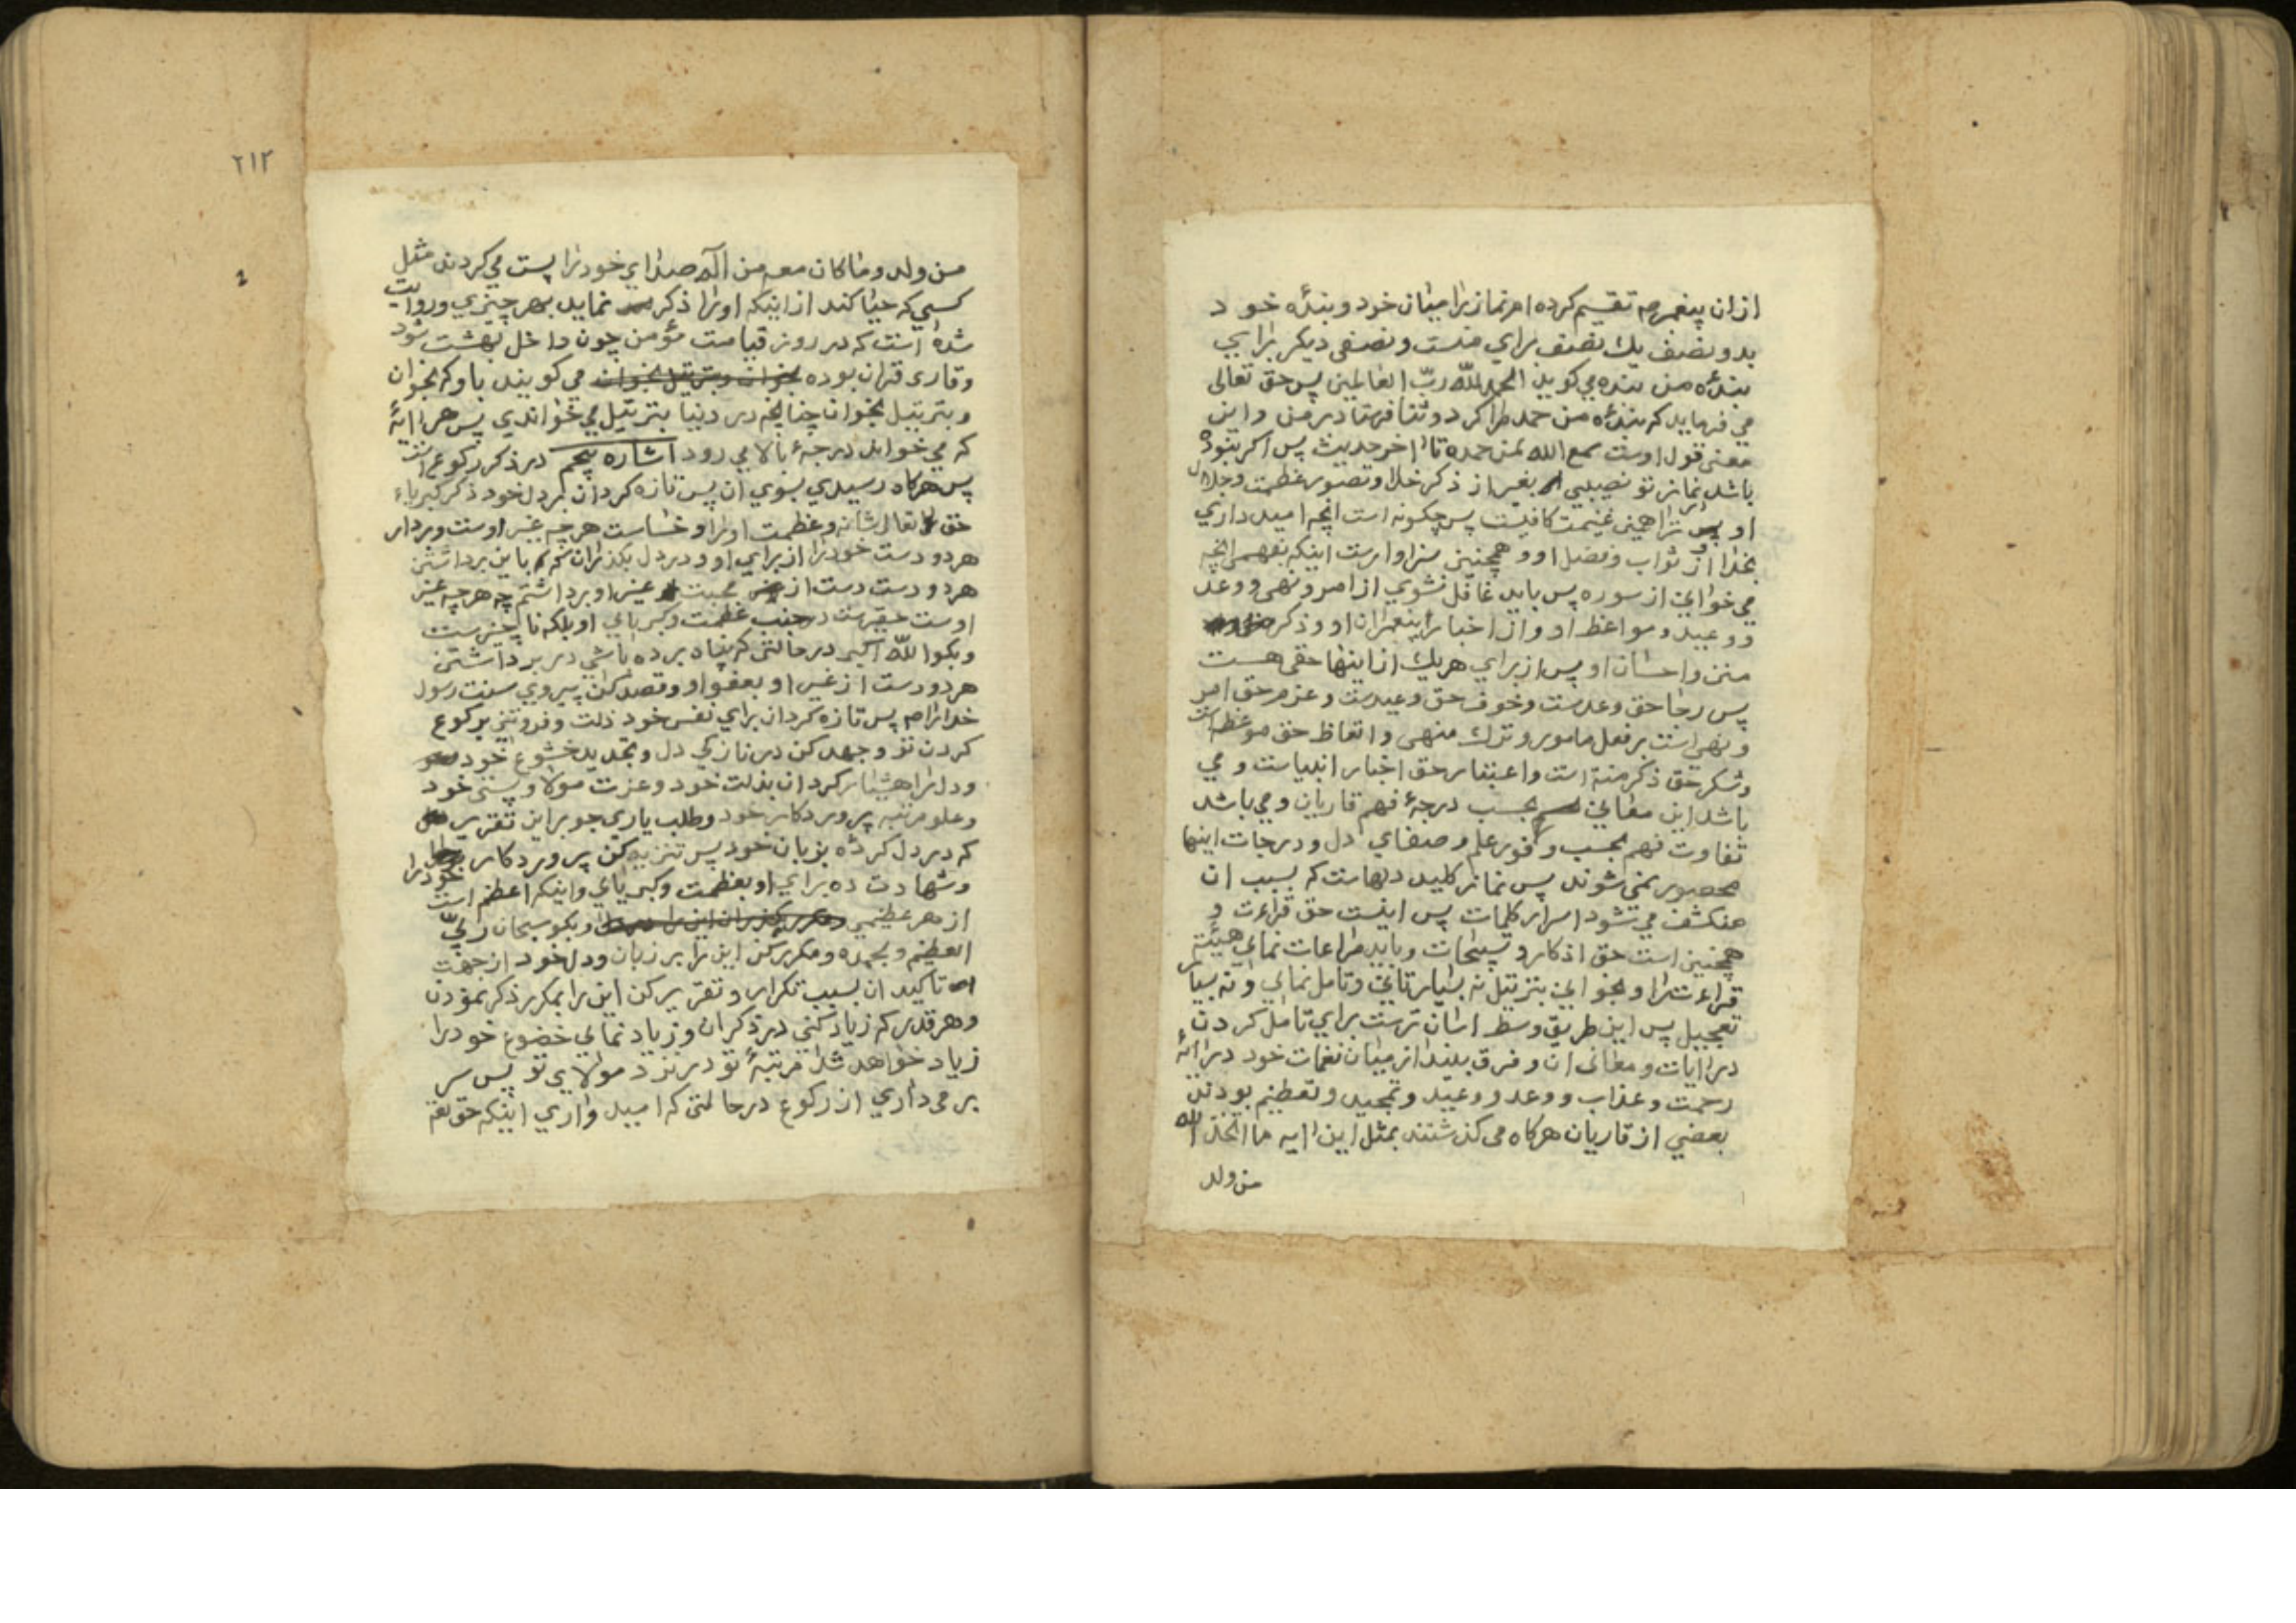 ازان پیغمبرم تقسیم کرده ام نماز را میان خود و بندۀ خود
بدو نصف یك نصف برای منست و نصفی دیکر برای
بندۀ من بنده می کوید الحمد لله ربّ العالمین پس حق تعالی
می فرماید که بندۀ من حمد مرا کرد و ثنا فرستاد بر من و این
معنی قول اوست سمع الله لمن حمده تا اخر حدیث پس اکر نبوده
باشد از نماز تو نصیبی بغیر از ذکر خدا و تصور عظمت و جلال
او ترا همین غنیمت کافیست پس چکونه است انچه امید داری
بخدا از ثواب و فضل او و همچنین سزاوارست اینکه بفهمی انچه
می خوانی از سوره پس باید غافل نشوی از امر و نهی و وعد
و وعید و مواعظ او و از اخبار پیغمبران او و ذکر
منن و احسان او پس از برای هریك از اینها حقی هست
پس رجا حق وعدست و خوف حق وعیدست و عزم حق امر
و نهی است بر فعل مامور و ترك منهی و اتعاظ حق موعظه است
و شکر حق ذکر منة است و اعتبار حق اخبار انبیاست و می
باشد این معانی بحسب درجۀ فهم قاریان و می باشد
تفاوت فهم بحسب وفور علم و صفای دل و درجات اینها
محصور نمی شوند پس نماز کلید دلهاست که بسبب ان
منکشف می شود اسرار کلمات پس اینست حق قراءت و
همچنین است حق اذکار و تسبیحات و باید مراعات نمای هیئة
قراءت را و بخوانی بترتیل نه بسیار تانی و تامل نمای و نه بسیار
تعجیل پس این طریق وسط اسان ترست برای تامل کردن
در ایات و معانی ان و فرق بینداز میان نغمات خود در ایۀ
رحمت و عذاب و وعد و وعید و تمجید و تعظیم بودند
بعضی از قاریان هرکاه می کذشتند بمثل این ایه ما اتخذ الله
من ولد
٢١٢
٤
من ولد و ما کان معه من اله صدای خود را پست می کردند مثل
کسی که حیا کند از اینکه او را ذکر نماید بهر چیزی و روایت
شده است که در روز قیامت مؤمن چون داخل بهشت شود
و قاری قران بوده بخوان و بترتیل بخوان می کویند باو که بخوان
و بترتیل بخوان چنانچه در دنیا بترتیل می خواندی پس هر ایۀ
که می خواند درجۀ بالا می رود اشاره پنجم در ذکر رکوع است
پس هرکاه رسیدی بسوی ان پس تازه کردان بر دل خود ذکر کبریاء
حق تعالی شانه و عظمت او را و خساست هر چه غیر اوست و بردار
هر دو دست خود را از برای او و در دل بکذران که باین برداشتن
هر دو دست دست از محبت غیر او برداشتم چه هر چه غیر
اوست حقیرست در جنب عظمت و کبریای او بلکه ناچیزست
و بکو الله اکبر در حالتی که پناه برده باشی در برداشتن
هر دو دست از غیر او بعفو او و قصد کن پیروی سنت رسول
خدا را م پس تازه کردان برای نفس خود ذلت و فروتنی برکوع
کردن تو و جهد کن در نازکی دل و تجدید خشوع خود
و دل را هشیار کردان بذلت خود و عزت مولا و پستی خود
و علو مرتبه پروردکار خود و طلب یاری جو بر این تقریر
که در دل کردۀ بزبان خود پس تنزیه کن پروردکار خود را
و شهادت ده برای او بعظمت و کبریای و اینکه اعظم است
از هر عظیمی و بکو سبحان ربّی
العظیم و بحمده و مکرر کن این را بر زبان و دل خود از جهت
تاکید ان بسبب تکرار و تقریر کن این را بمکرر ذکر نمودن
و هر قدر که زیاد کنی در ذکر ان و زیاد نمای خضوع خود را
زیاد خواهد شد مرتبۀ تو در نزد مولای تو پس سر
بر می داری از رکوع در حالتی که امید واری اینکه حق تعه